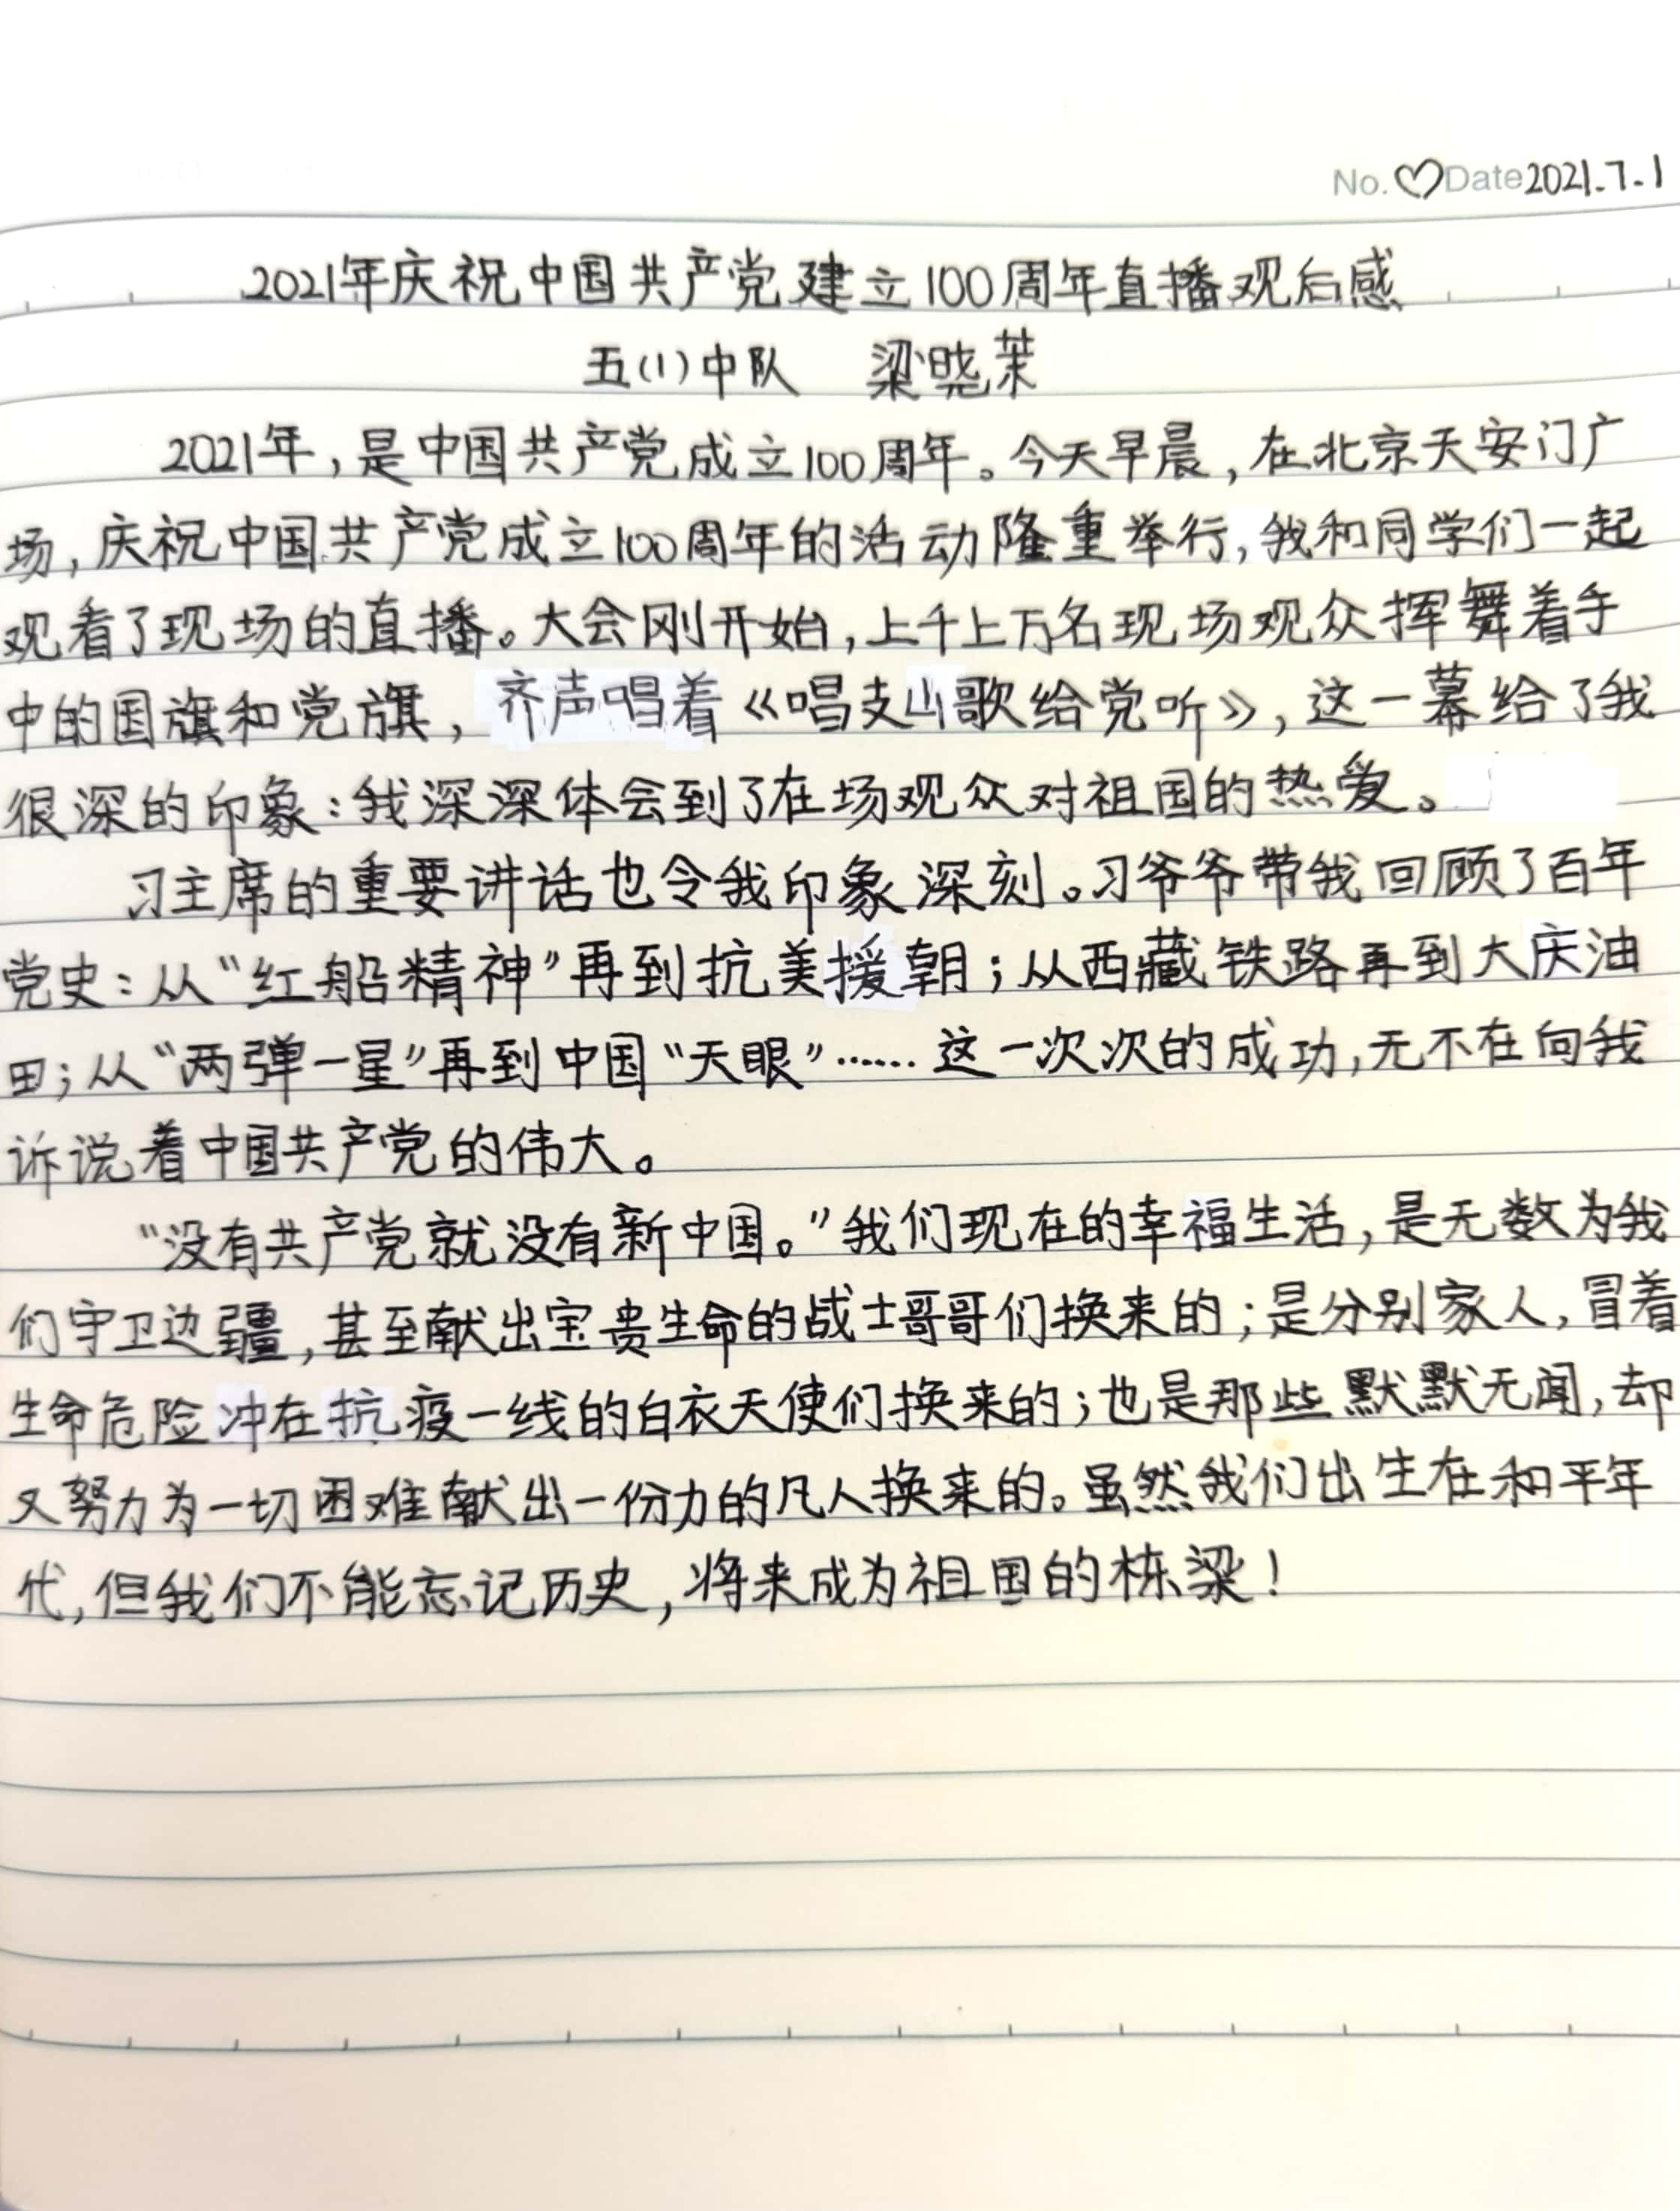 No. ♡ Date 2021.7.1
2021年庆祝中国共产党建立100周年直播观后感
五(1)中队 梁晓茉
2021年,是中国共产党成立100周年。今天早晨,在北京天安门广
场,庆祝中国共产党成立100周年的活动隆重举行,我和同学们一起
观看了现场的直播。大会刚开始,上千上万名现场观众挥舞着手
中的国旗和党旗,齐声唱着《唱支山歌给党听》,这一幕给了我
很深的印象:我深深体会到了在场观众对祖国的热爱。
习主席的重要讲话也令我印象深刻。习爷爷带我回顾了百年
党史:从“红船精神”再到抗美援朝;从西藏铁路再到大庆油
田;从“两弹一星”再到中国“天眼”……这一次次的成功,无不在向我
诉说着中国共产党的伟大。
“没有共产党就没有新中国。”我们现在的幸福生活,是无数为我
们守卫边疆,甚至献出宝贵生命的战士哥哥们换来的;是分别家人,冒着
生命危险冲在抗疫一线的白衣天使们换来的;也是那些默默无闻,却
又努力为一切困难献出一份力的凡人换来的。虽然我们出生在和平年
代,但我们不能忘记历史,将来成为祖国的栋梁!